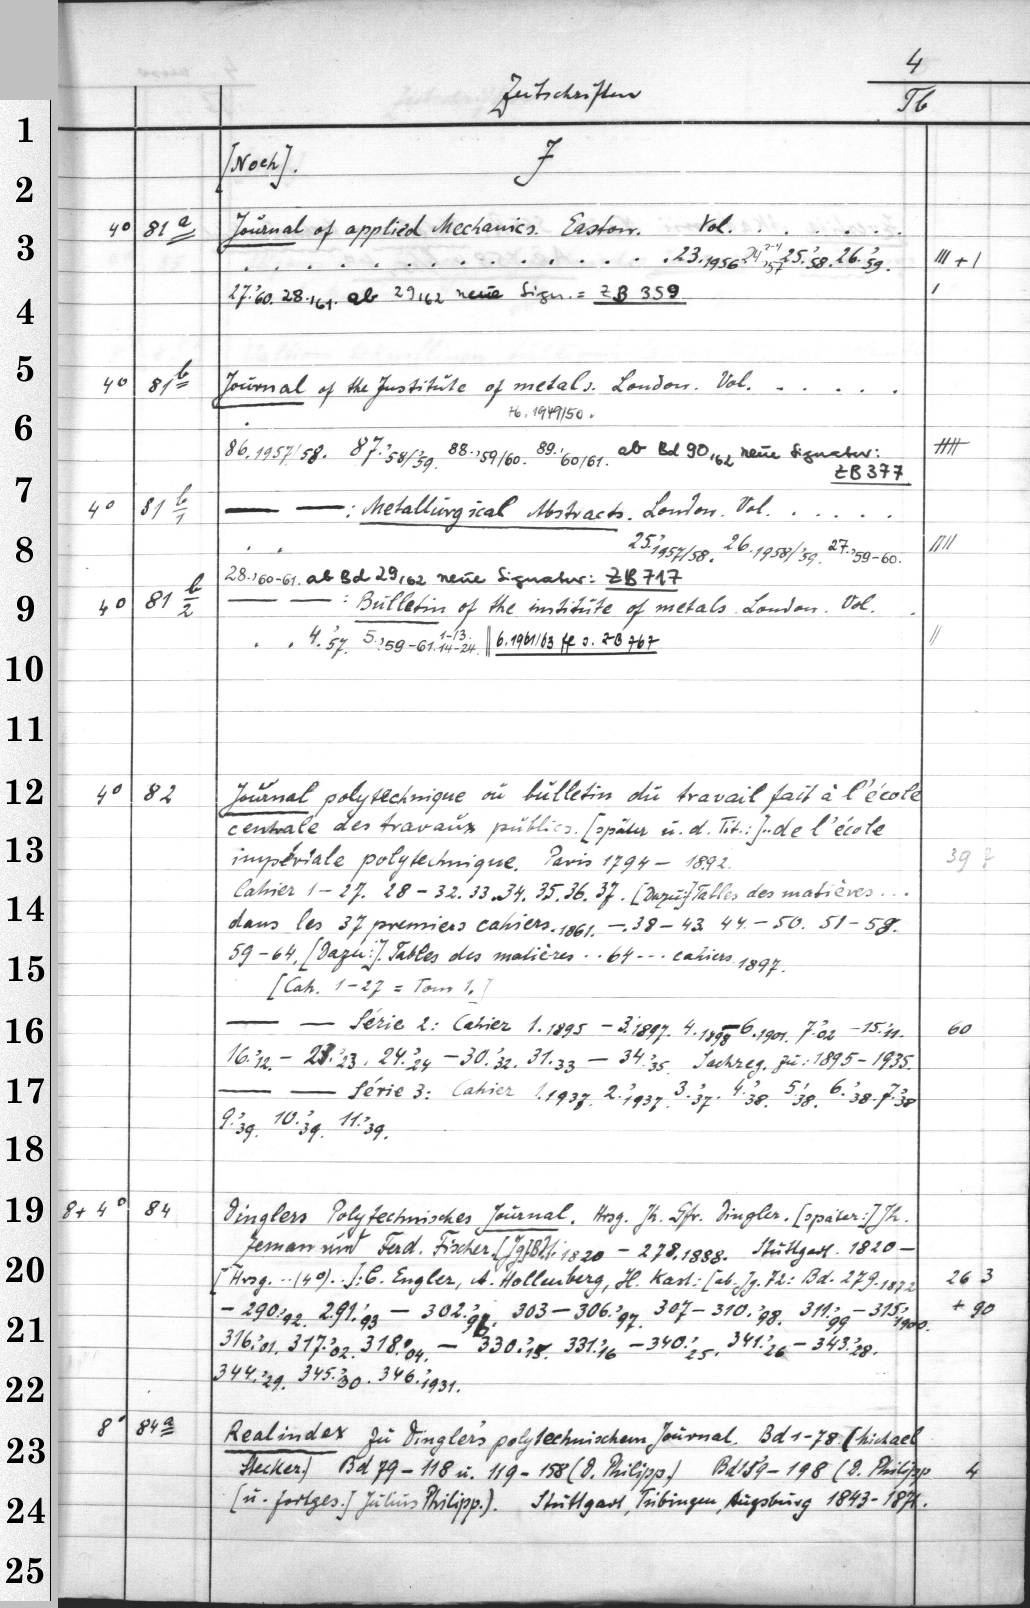 4
Zeitschriften Tb
1
[Noch]. J
2
4° 81 a Journal of applied Mechanics. Easton. Vol. . . . . . .
3 . . . . . . . . . . . . . 23.1956 24.'57 2-4 25.'58. 26.'59. III + I
27.'60. 28.'61. ab 29,'62 neue Sign. = ZB 359 I
4
5
4° 81 b Journal of the Institute of metals. London. Vol. . . . . .
76.1949/50.
6
86.1957/58. 87.'58/'59. 88.'59/60. 89.'60/61. ab Bd 90,'62 neue Signatur:
ZB 377
7
4° 81 b/1 — — : Metallurgical Abstracts. London. Vol. . . . . .
8 . . 25.1957/58. 26.1958/'59. 27.'59-60. IIII
28.'60-61. ab Bd 29,'62 neue Signatur: ZB 717
9 4° 81 b/2 — — : Bulletin of the institute of metals. London. Vol. .
. . 4.'57. 5.'59-61. 1-13. 14-24. || 6.1961/63 ff s. ZB 767 II
10
11
12 4° 82 Journal polytechnique ou bulletin du travail fait à l'école
centrale des travaux publics. [später u. d. Tit.:] .. de l'école
13 impériale polytechnique. Paris 1794 – 1892. 39
Cahier 1 – 27. 28 – 32. 33. 34. 35. 36. 37. [Dazu:] Tables des matières . . .
14 dans les 37 premiers cahiers. 1861. – 38 – 43. 44. – 50. 51 – 58.
59 – 64. [Dazu:]. Tables des matières .. 64 ... cahiers 1897.
15
[Cah. 1 – 27 = Tom 1.]
16 — — Série 2: Cahier 1.1895 – 3.1897. 4.1898 – 6.1901. 7.'02 – 15.'11. 60
16.'12. – 23.'23. 24.'24 – 30.'32. 31.33 – 34.'35. Sachreg. zu: 1895 – 1935.
17 — — Série 3: Cahier 1.1937. 2.'1937. 3.'37. 4.'38. 5.'38. 6.'38. 7.'38
9.'39. 10.'39. 11.'39.
18
19 8+4° 84 Dinglers Polytechnisches Journal. Hrsg. Jh. Gfr. Dingler. [später:] Jh.
Zeman und Ferd. Fischer. [Jg] Bd 1.1820 – 278.1888. Stuttgart. 1820 –
20 [Hrsg. .. (4°) ..]: C. Engler, A. Hollenberg, H. Kast: [ab. Jg. 72: Bd. 279.1892 26 3
– 290.'92. 291.'93 – 302.'96. 303 – 306.'97. 307 – 310.'98. 311.'99 – 315.1900. + 90
21
316.'01. 317.'02. 318.'04. – 330.'15. 331.'16 – 340.'25. 341.'26 – 343.'28.
22 344.'29. 345.'30. 346.'1931.
8° 84 a Realindex zu Dinglers polytechnischem Journal. Bd 1 – 78. (Michael
23
Stecker.) Bd 79 – 118 u. 119 – 158 (D. Philipp.) Bd 159 – 198 (D. Philipp 4
24 [u. fortges.] Julius Philipp.). Stuttgart, Tübingen, Augsburg 1843 – 1871.
25